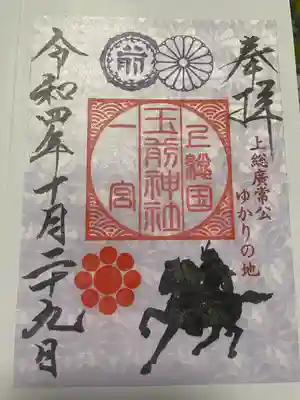 奉拝
上総広常公
ゆかりの地
前
上総国
玉前神社
一宮
令和四年十月二十九日